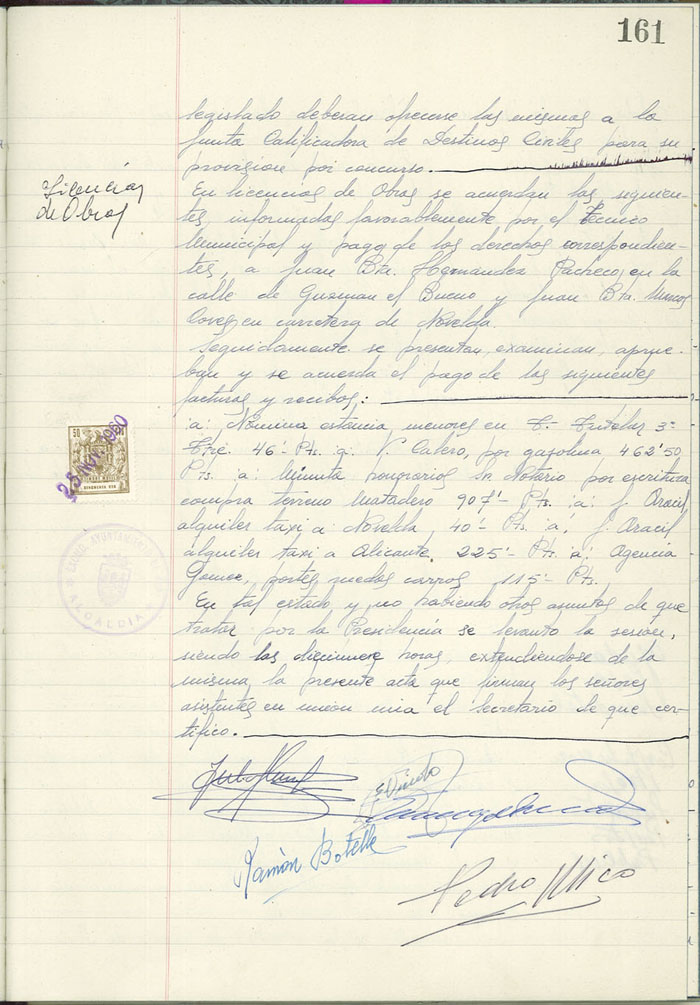 161
legislado deberan ofrecerse las mismas a la
Junta Calificadora de Destinos Civiles para su
provision por concurso.
Licencias
de Obras
En licencias de Obras se acuerdan las siguien-
tes, informadas favorablemente por el Tecnico
Municipal y pago de los derechos correspondien-
tes, a Juan Bta. Hernandez Pacheco, en la
calle de Guzman el Bueno y Juan Bta.
en carretera de Novelda.
Seguidamente se presentan, examinan, aprue-
ban y se acuerda el pago de las siguientes
facturas y recibos:
a: Nomina estancia, menores en T. Tutelar 3º
Tre. 46'- Pts. a: V. Calero, por gasolina 462'50
Pts. a: Minuta honorarios Sr. Notario por escritura
compra terreno Matadero 907'- Pts. a: J. Aracil
alquiler taxi a Novelda, 40'- Pts. a: J. Aracil
alquiler taxi a Alicante, 225'- Pts. a: Agencia
portes ruedas carros 115'- Pts.
50
25 NOV. 1960
AYUNTAMIENTO
ALCALDIA
En tal estado y no habiendo otros asuntos de que
tratar por la Presidencia se levanto la sesion,
siendo las diecinueve horas, extendiendose de la
misma la presente acta que firman los señores
asistentes en union mia el Secretario de que cer-
tifico.
Ramón Botella
Pedro Mico